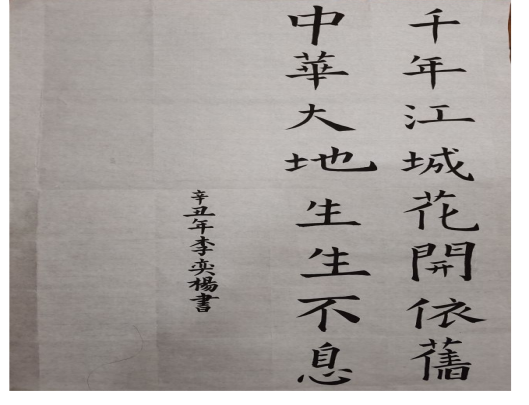 千年江城花開依舊
中華大地生生不息
辛丑年李奕楊書